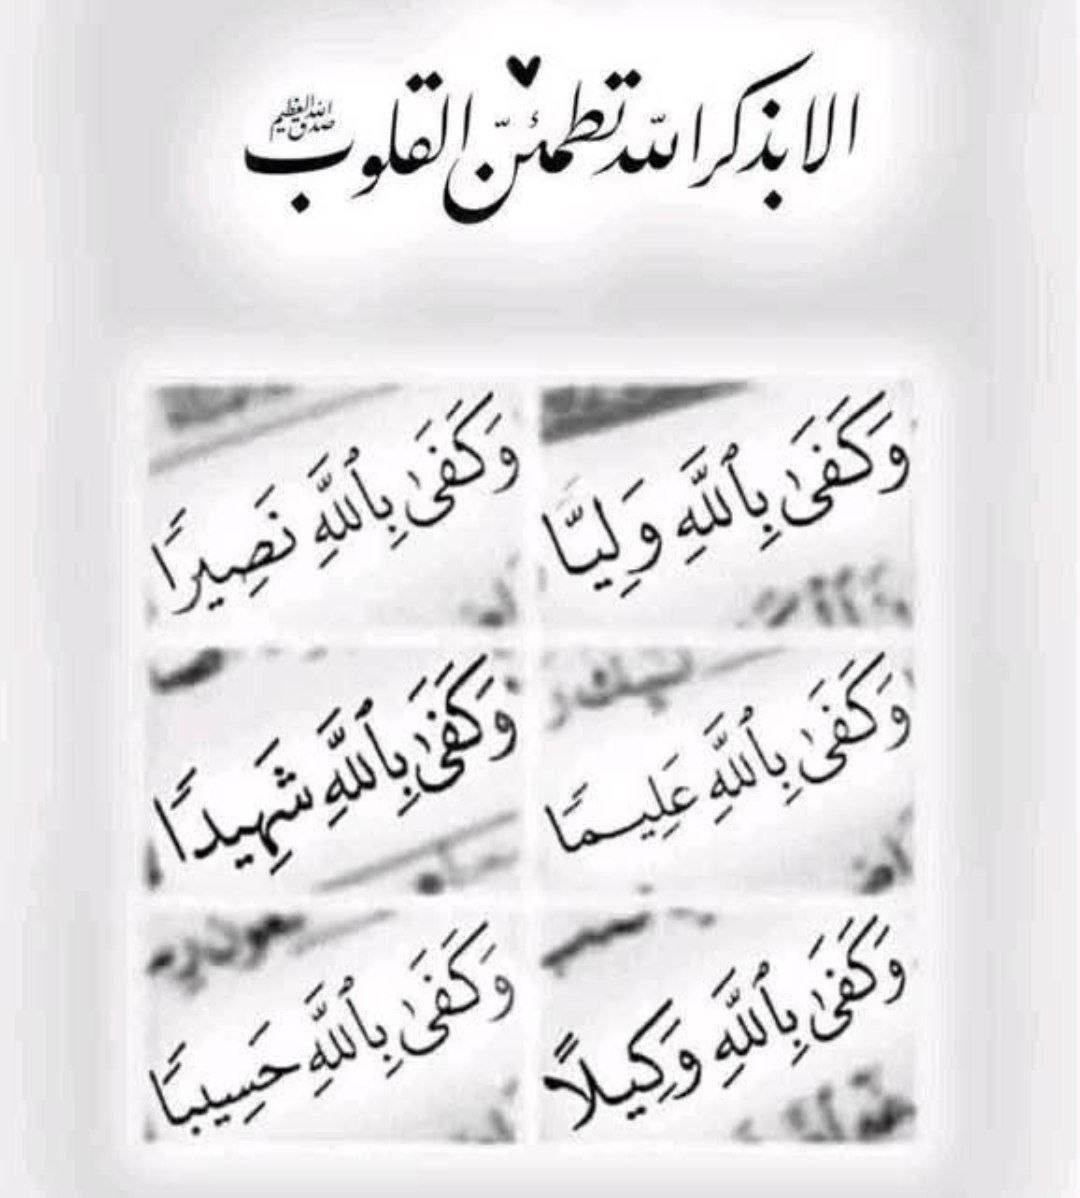 الا بذكر الله تطمئنّ القلوب
صدق الله العظيم
وَكَفَىٰ بِٱللَّهِ وَلِيًّا
وَكَفَىٰ بِٱللَّهِ نَصِيرًا
وَكَفَىٰ بِٱللَّهِ عَلِيمًا
وَكَفَىٰ بِٱللَّهِ شَهِيدًا
وَكَفَىٰ بِٱللَّهِ وَكِيلًا
وَكَفَىٰ بِٱللَّهِ حَسِيبًا